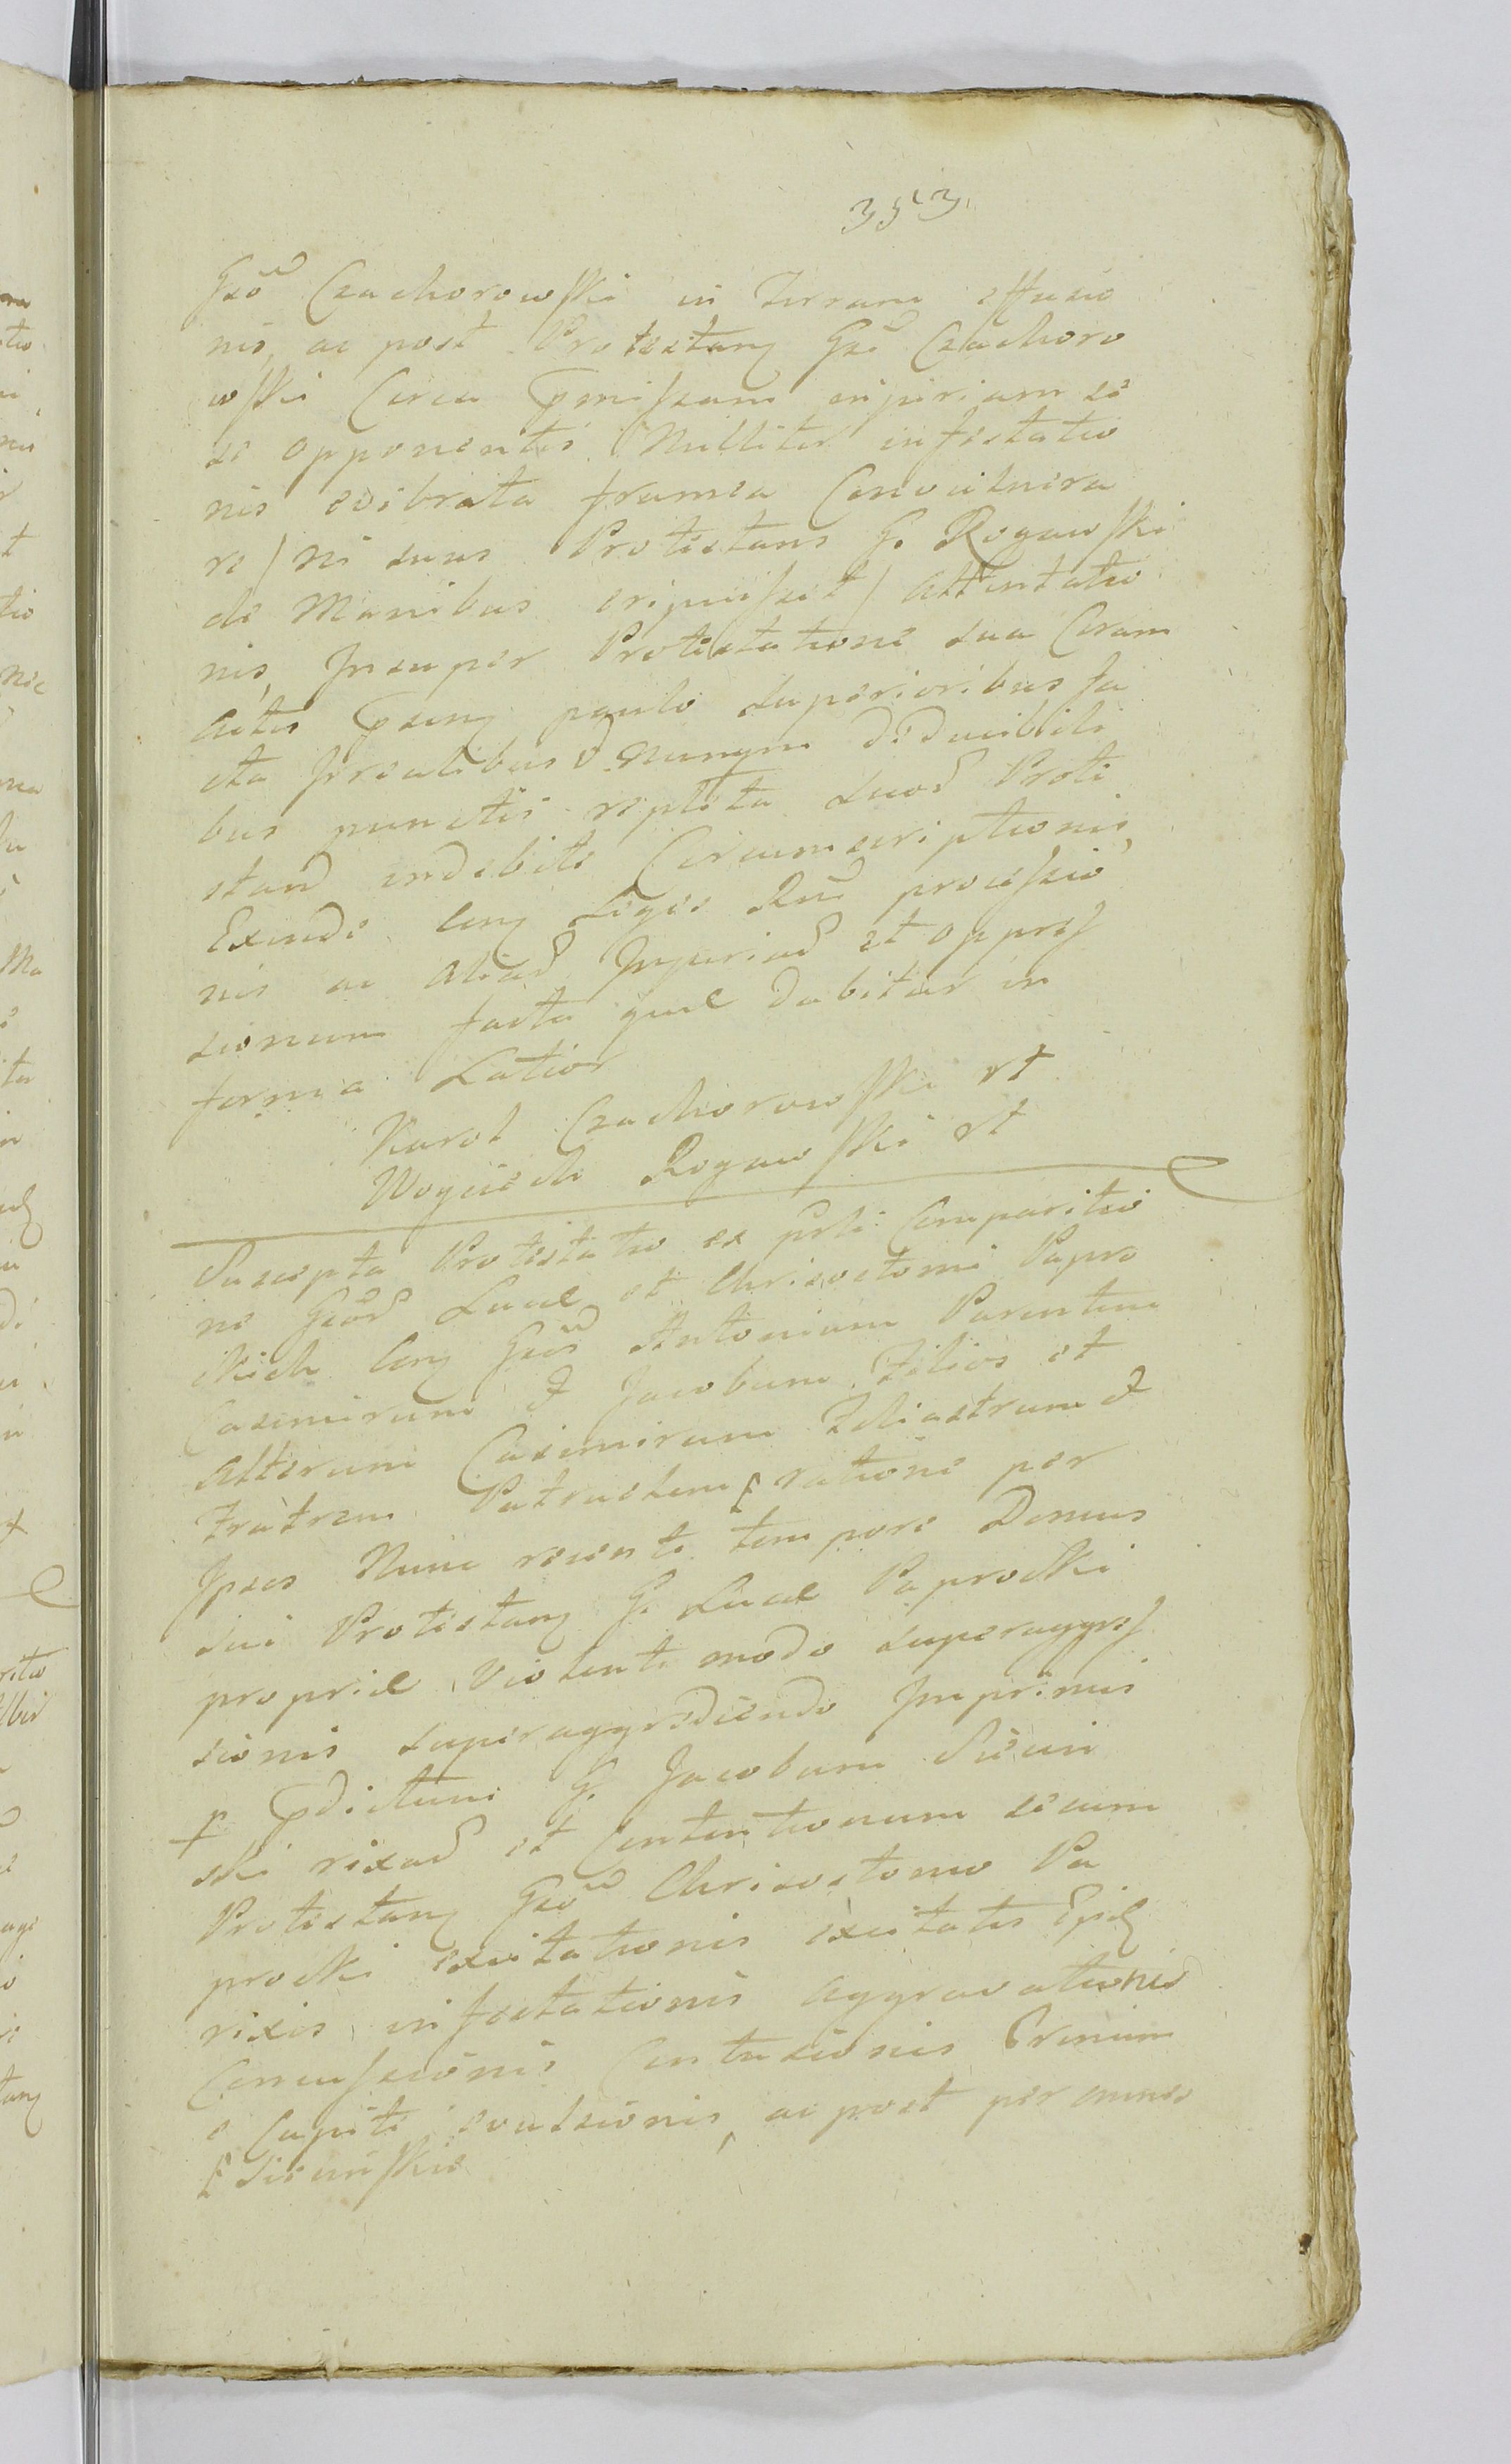 353
Gsō Czachorowski in Terram effusio
nis, ac post Protestang Gsi Czachoro
wski Circa pmissam injuriam se
se opponentis Militer infestatio
nis evibrata framea Convulnera
re / ni suus Protestans G. Rogawski
de Manibus eripuisset / attentatio
nis, Insuper Protestatione sua Coram
Actis pseng paulo superioribus fa
cta Irrealibus & nunqm deducibili
bus punctis repleta suor Prote
stand indebite Circumscriptionis,
Exinde Cong Leges Rni processio
nis ac aliar Injuriar et oppres
sionum facta quæ dabitur in
forma Latior
Karol Czachorowski rt
Woyciech Rogawski rt
Suscepta Protestatio ex prli Comparitio
ne Gsōr Lucæ et Chrisostomi Papro
ckich Cong Gsos Antonium Parentem
Casimirum & Jacobum Filios et
Alterum Casimirum Filiastrum &
Fratrem Patruelem ratione per
Ipsos Nunc recenti tempore Domus
sui Protestang G. Lucæ Paprocki
propriæ Violenti modo superaggres
sionis superaggrediendo Imprimis
+ pdictum G. Jacobum Sieciń
ski rixar et Contentionum secum
Protestang Gsō Chrisostomo Pa
procki excitationis excitatis Epis
rixis infestationis aggravationis
Concussionis Contusionis Crinium
e Capite evulsionis, ac post per omnes
Siecińskie